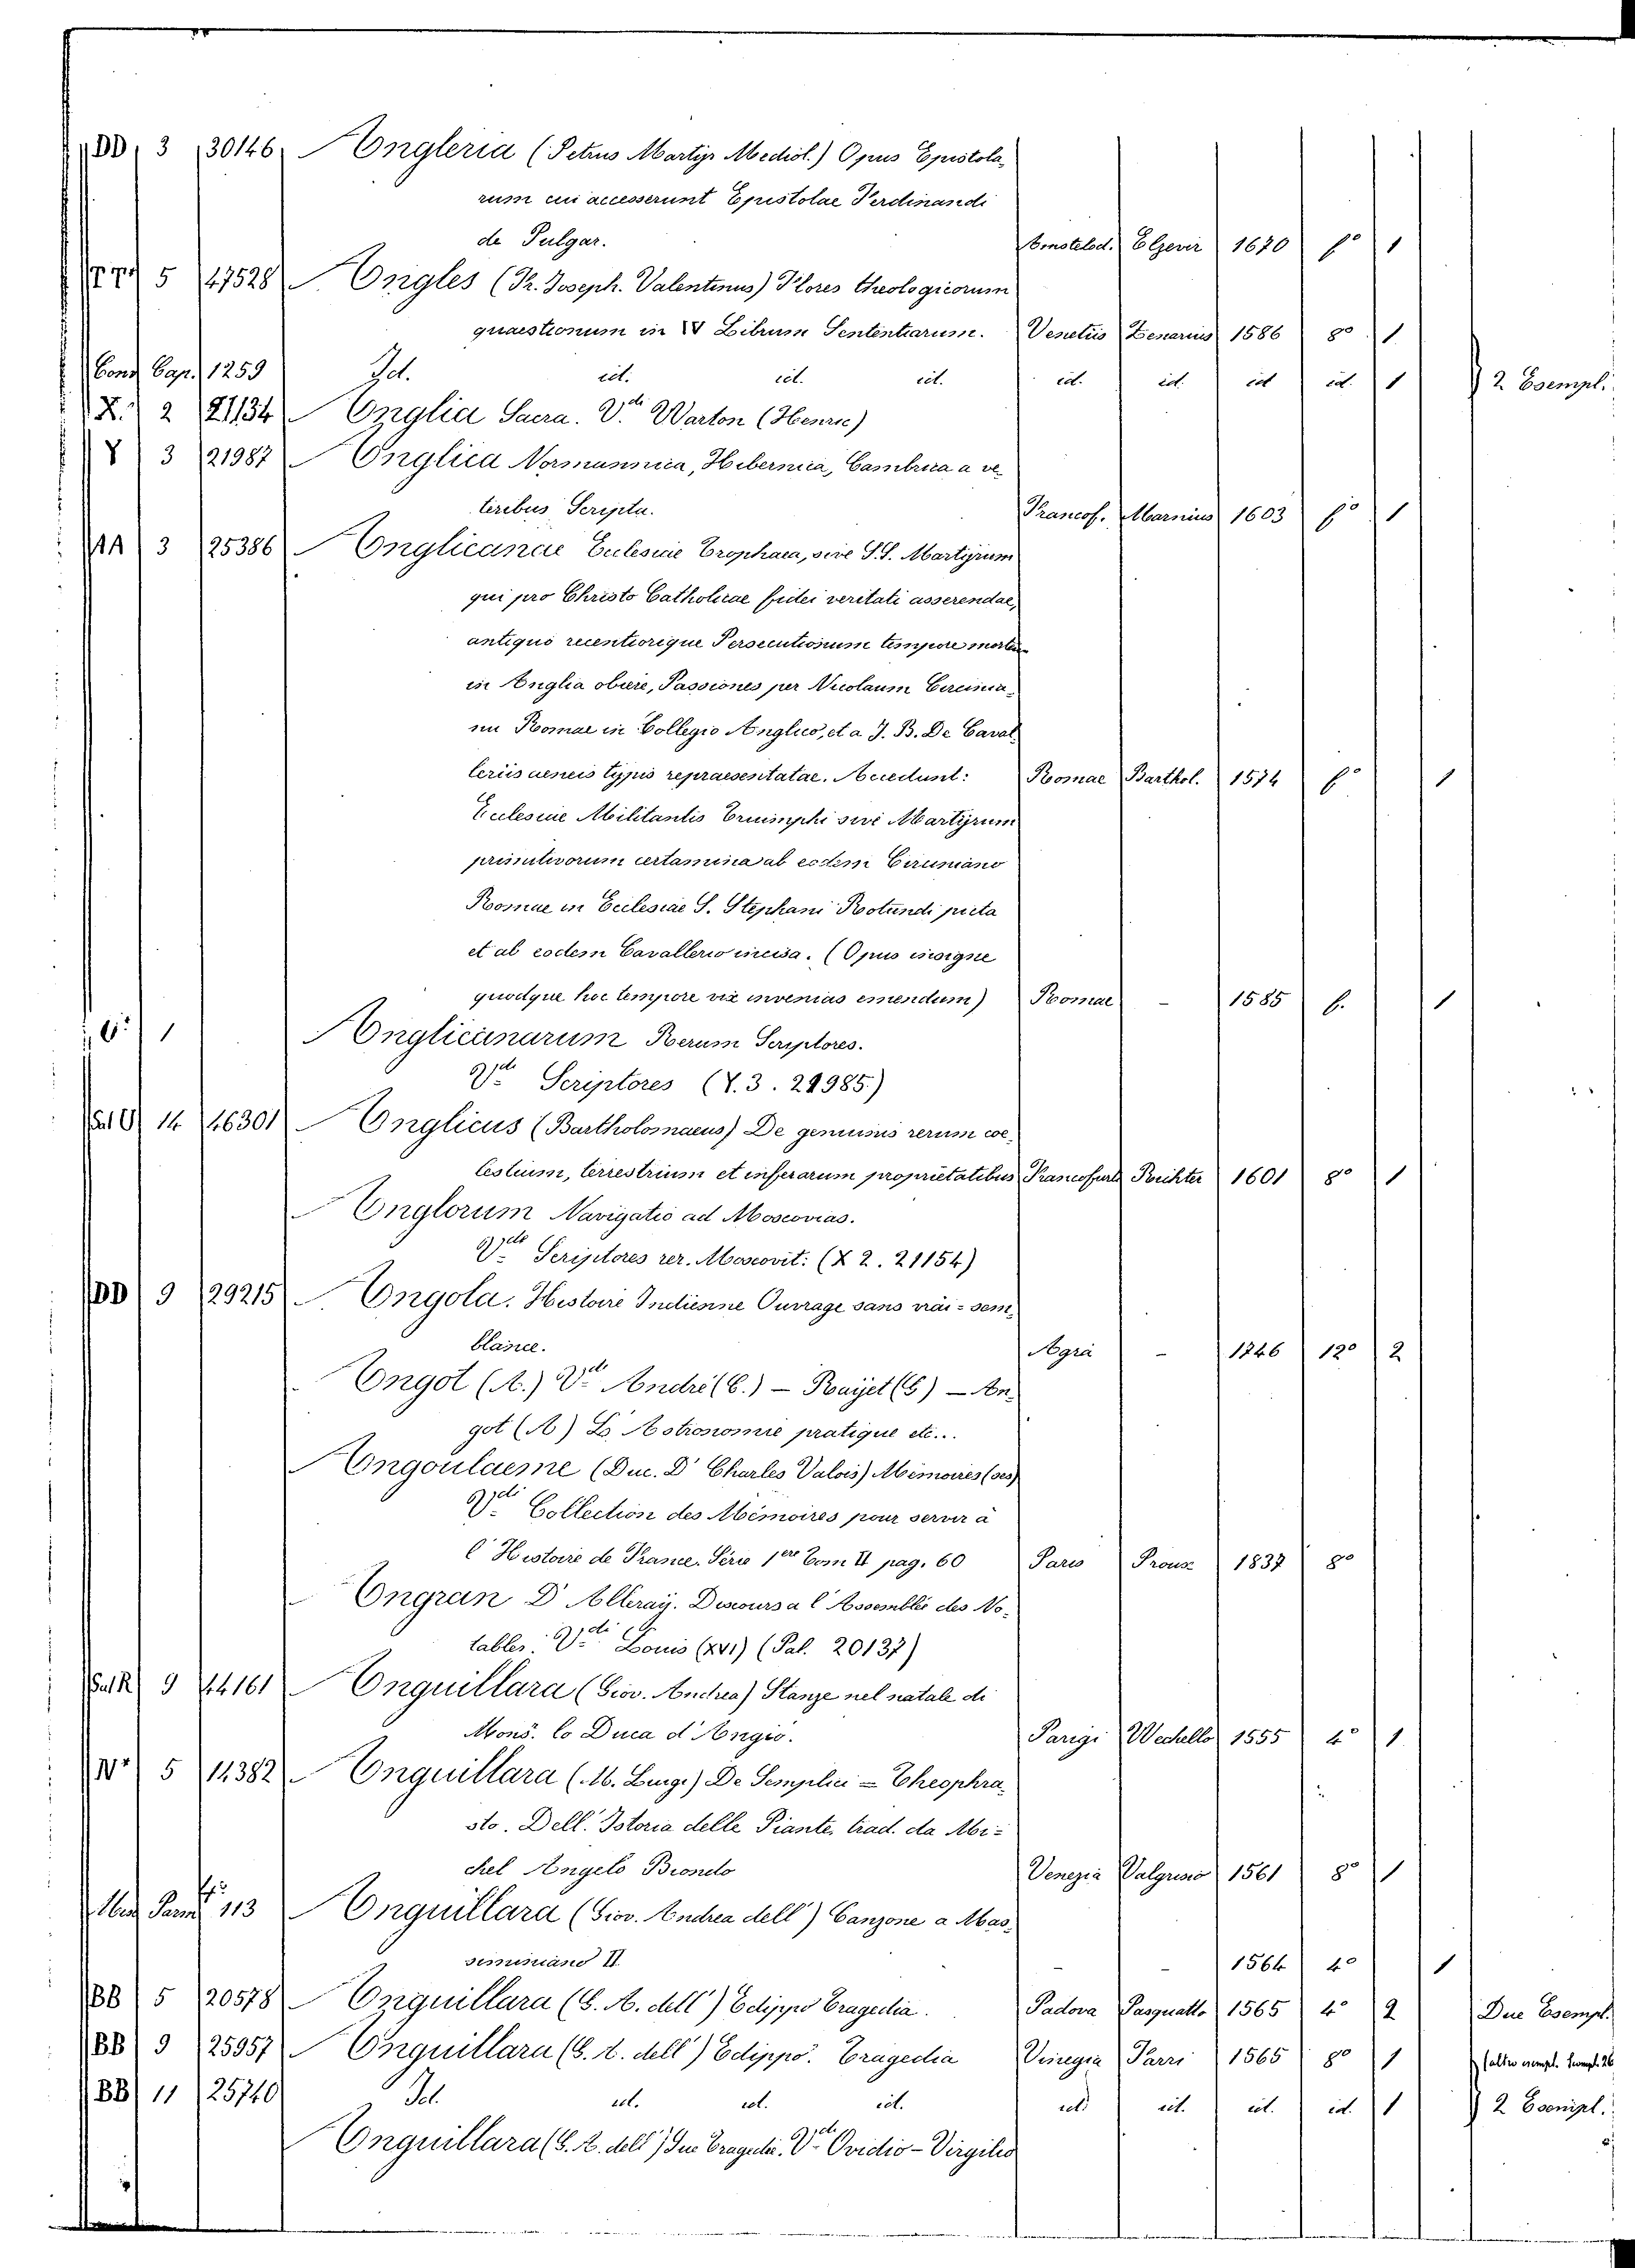 DD 3 30146 Angleria (Petrus Martyr Mediol.) Opus Epistola-
rum cui accesserunt Epistolae Ferdinandi
de Pulgar. Amstelod. Elzevir 1670 f.º 1
5 47528 Angles (Fr. Joseph. Valentinus) Flores theologicorum
quaestionum in IV Librum Sententiarum. Venetiis Zenarius 1586 8º 1
Cons Cap. 1259 Id. id. id. id. id. id. id. id. 1 2. Esempl.
X. 2 21134 Anglia Sacra. V.di Warton (Henric)
Y 3 21987 Anglica Normannica, Hibernica, Cambrica a ve-
teribus Scripta. Francof. Marnius 1603 f.º 1
AA 3 25386 Anglicanae Ecclesiae Trophaea, sive S.S. Martyrum
qui pro Christo Catholicae fidei veritati asserendae,
antiquo recentiorique Persecutionum tempore mortem
in Anglia obiere, Passiones per Nicolaum Circinia-
ni Romae in Collegio Anglico, et a J. B. De Caval-
leriis aeneis typis repraesentatae. Accedunt: Romae Barthol. 1574 f.º 1
Ecclesiae Militantis Triumphi sive Martyrum
primitivorum certamina ab eodem Circiniano
Romae in Ecclesiae S. Stephani Rotundi picta
et ab eodem Cavallerio incisa. (Opus insigne
quodque hoc tempore vix invenias emendum) Romae – 1585 f. 1
1 Anglicanarum Rerum Scriptores.
V.di Scriptores (Y. 3. 21985)
Sal O 14 46301 Anglicus (Bartholomaeus) De genuinis rerum coe-
lestium, terrestrium et inferarum proprietatibus Francofurti Richter 1601 8º 1
Anglorum Navigatio ad Moscovias.
V.di Scriptores rer. Moscovit: (X 2. 21154)
DD 9 29215 Angola. Histoire Indienne Ouvrage sans vrai-sem-
blance. Agra – 1746 12º 2
Angot (A.) V.di André (C.) – Rayet (G) – An-
got (A) L'Astronomie pratique etc...
Angoulaeme (Duc. D' Charles Valois) Mémoires (ses)
V.di Collection des Mémoires pour servir à
l'Histoire de France. Série 1ere Tom II pag. 60 Paris Proux 1837 8º
Angran D'Alleray. Discours a l'Assemblée des No-
tables. V.di Louis (XVI) (Pal. 20137)
Sal R 9 44161 Anguillara (Giov. Andrea) Stanze nel natale di
Mons. lo Duca d'Angiò. Parigi Wechello 1555 4º 1
5 14382 Anguillara (M. Luigi) De Semplici = Theophra-
sto. Dell'Istoria delle Piante, trad. da Mi-
chel Angelo Biondo Venezia Valgrisio 1561 8º 1
113 Anguillara (Giov. Andrea dell') Canzone a Mas-
similiano II – – 1564 4º 1
BB 5 20578 Anguillara (G. A. dell') Edippo Tragedia. Padova Pasquatto 1565 4º 2 Due Esempl.
BB 9 25957 Anguillara (G. A. dell') Edippo. Tragedia Vinegia Farri 1565 8º 1 (altro esempl.
BB 11 25740 Id. id. id. id. id. id. id. id. 1 2 Esempl.
Anguillara (G. A. dell') Due Tragedie. V.di Ovidio – Virgilio